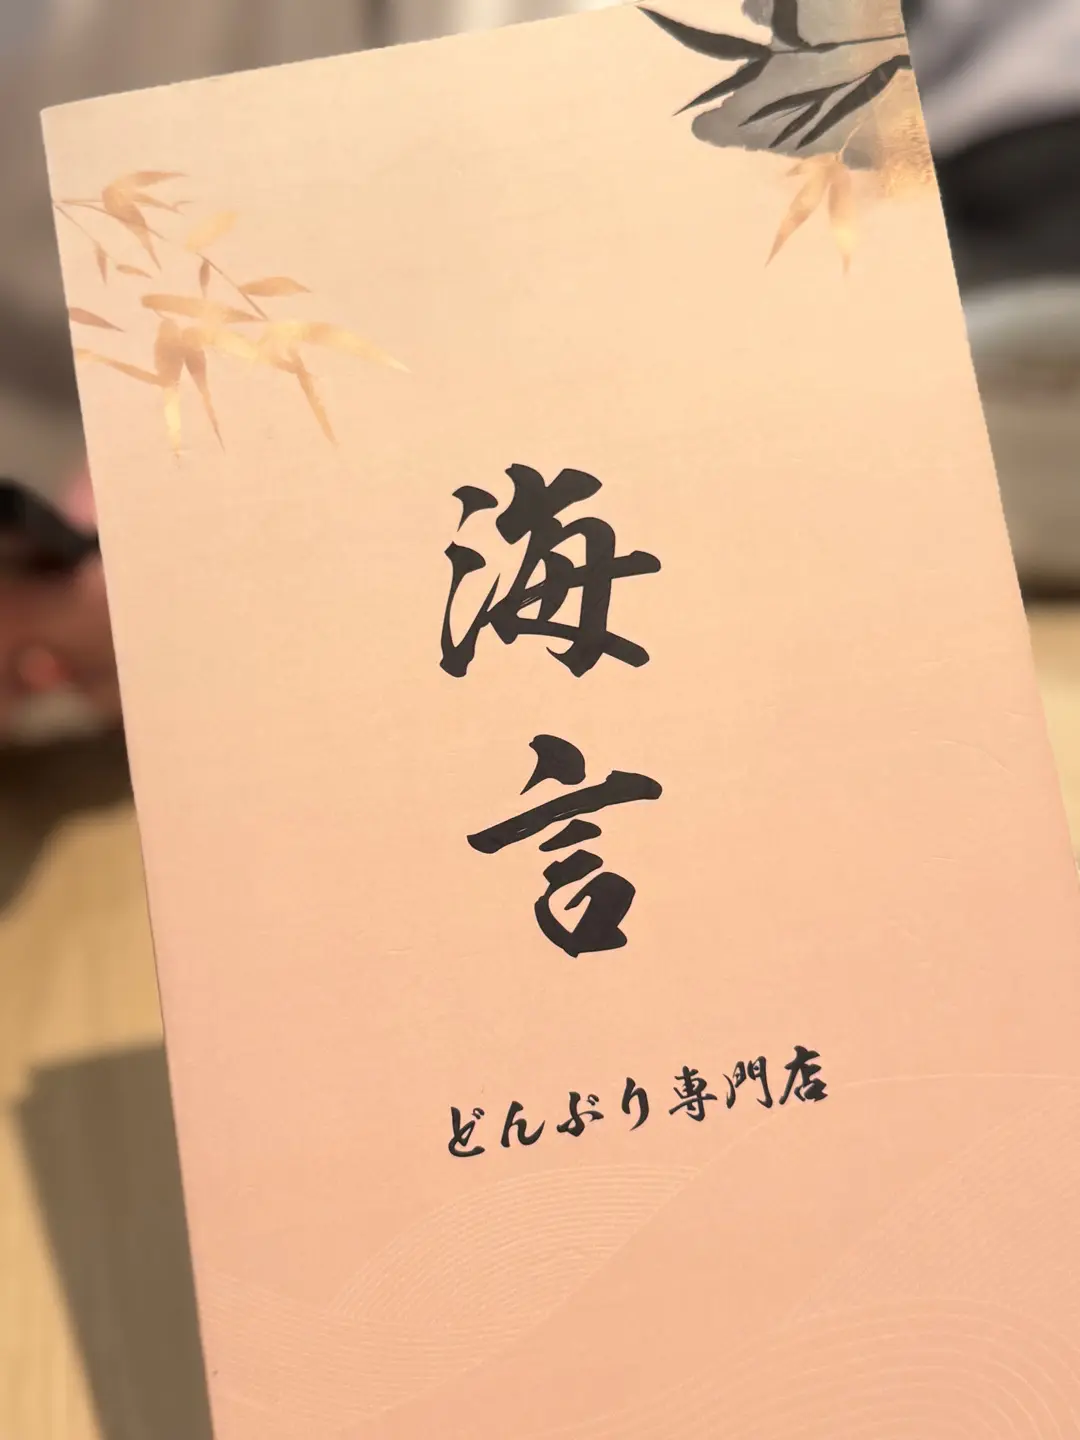 海言
どんぶり専門店